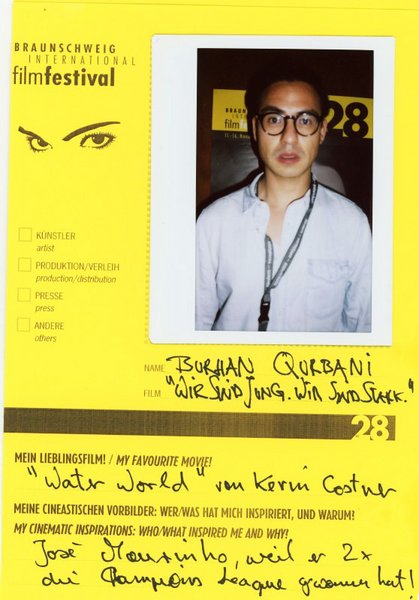 BRAUNSCHWEIG
INTERNATIONAL
filmfestival
BRAUN
film
28
KÜNSTLER
artist
PRODUKTION/VERLEIH
production/distribution
PRESSE
press
ANDERE
others
NAME BURHAN QURBANI
FILM "WIR SIND JUNG. WIR SIND STARK."
28
MEIN LIEBLINGSFILM! / MY FAVOURITE MOVIE!
"Water World" von Kevin Costner
MEINE CINEASTISCHEN VORBILDER: WER/WAS HAT MICH INSPIRIERT, UND WARUM?
MY CINEMATIC INSPIRATIONS: WHO/WHAT INSPIRED ME AND WHY!
José Mourinho, weil er 2x
die Champions League gewonnen hat!